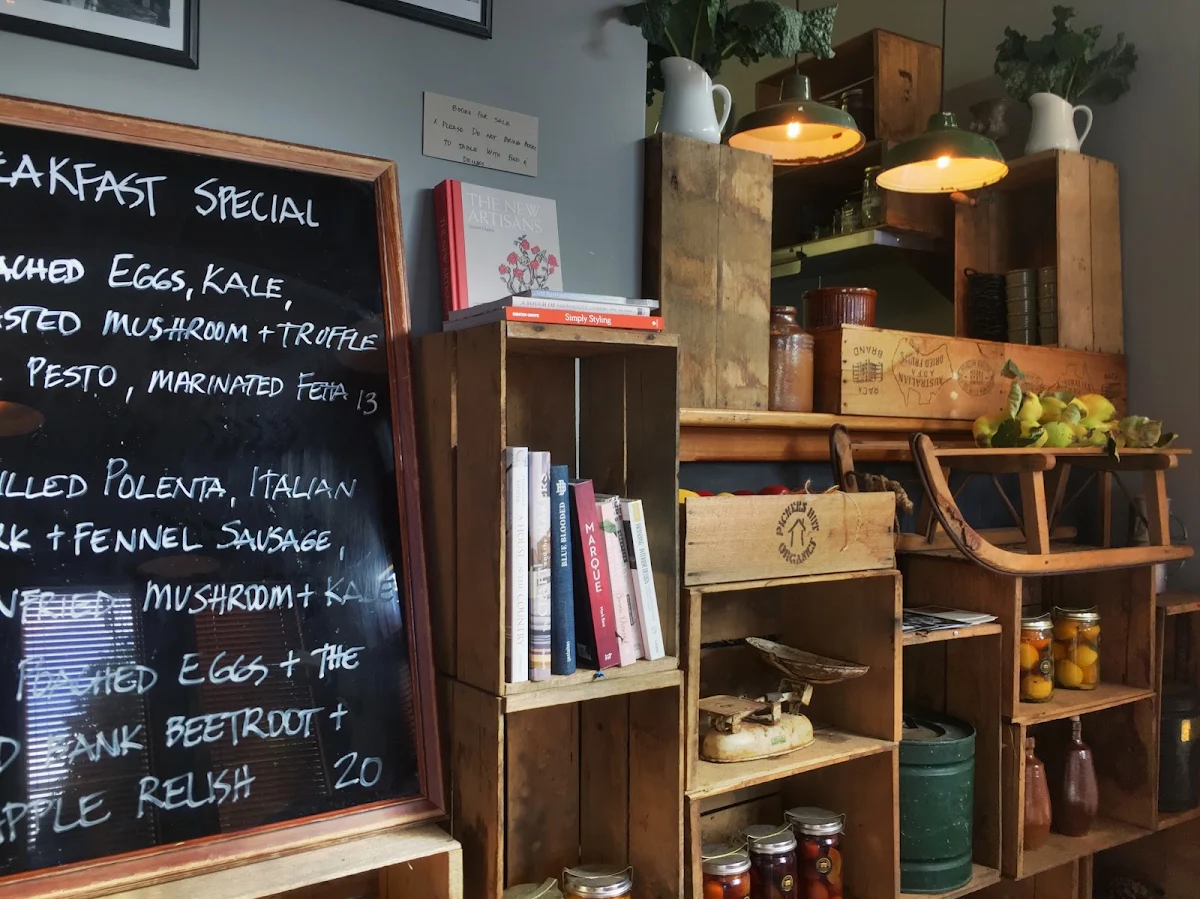 EAKFAST SPECIAL
ACHED EGGS, KALE,
STED MUSHROOM + TRUFFLE
PESTO, MARINATED FETA 13
ILLED POLENTA, ITALIAN
RK + FENNEL SAUSAGE,
NFRIED MUSHROOM + KALE
POACHED EGGS + THE
D BANK BEETROOT +
APPLE RELISH 20
BOOKS FOR SALE
PLEASE DO NOT BRING BOOKS
TO TABLE WITH FOOD &
DRINKS
THE NEW
ARTISANS
Simply Styling
BLUE BLOODED
MARQUE
RACK
BRAND
AUSTRALIAN
DRIED FRUITS
PICKERS HUT
ORGANICS